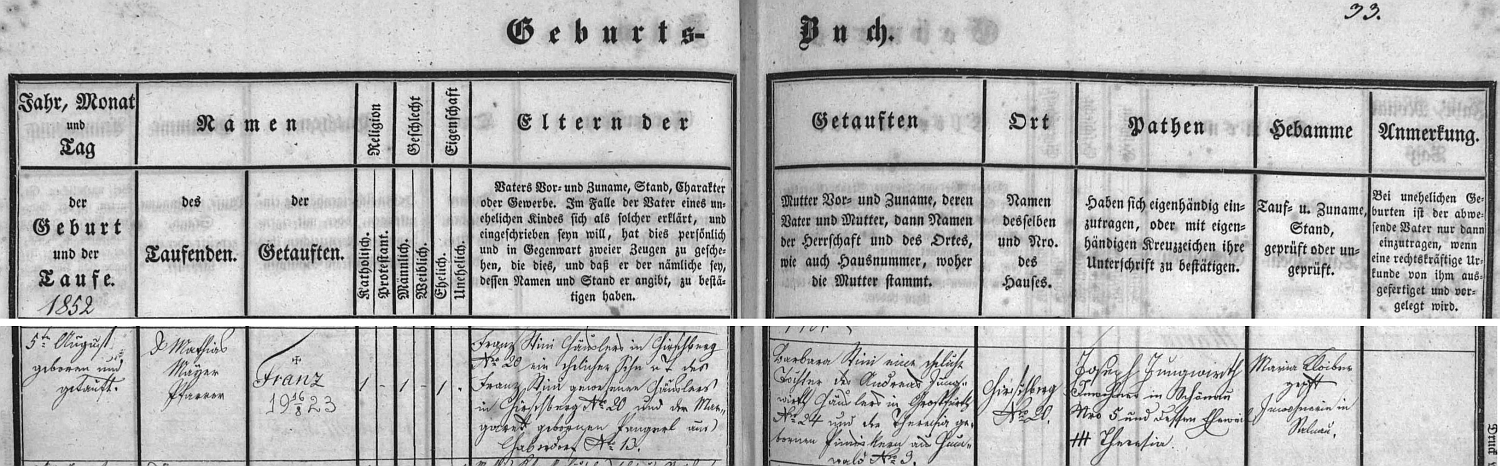 33.
Geburts-Buch.
Jahr, Monat
und
Tag
Namen
Religion
Geschlecht
Eigenschaft
Eltern der
Getauften
Ort
Pathen
Hebamme
Anmerkung.
der
Geburt
und der
Taufe.
1852
des
Taufenden.
der
Getauften.
Katholisch.
Protestant.
Männlich.
Weiblich.
Ehelich.
Unehelich.
Vaters Vor- und Zuname, Stand, Charakter
oder Gewerbe. Im Falle der Vater eines un-
ehelichen Kindes sich als solcher erklärt, und
eingeschrieben seyn will, hat dies persönlich
und in Gegenwart zweier Zeugen zu gesche-
hen, die dies, und daß er der nämliche sey,
dessen Namen und Stand er angibt, zu bestä-
tigen haben.
Mutter Vor- und Zuname, deren
Vater und Mutter, dann Namen
der Herrschaft und des Ortes,
wie auch Hausnummer, woher
die Mutter stammt.
Namen
desselben
und Nro.
des
Hauses.
Haben sich eigenhändig ein-
zutragen, oder mit eigen-
händigen Kreuzzeichen ihre
Unterschrift zu bestätigen.
Tauf- u. Zuname,
Stand,
geprüft oder un-
geprüft.
Bei unehelichen Ge-
burten ist der abwe-
sende Vater nur dann
einzutragen, wenn
eine rechtskräftige Ur-
kunde von ihm aus-
gefertiget und vor-
gelegt wird.
5te August
geboren und
getauft.
Mathias
Mayer
Pfarrer
Franz
19 16/8 23
1 - 1 - 1 .
Franz Häuslers in Hirschberg
No 20 ein ehelicher Sohn des
Franz gewesenen Häuslers
in Hirschberg No 20 und der Mar-
garet gebornen aus
No 13.
Barbara eine eheliche
Tochter des Andreas Jung-
wirth Häuslers in
No 24 und der Theresia ge-
bornen aus
No 3.
Hirschberg
No 20.
Joseph Jungwirth
in
Nro 5 und dessen
Theresia.
Maria
gepft
in
Salnau.